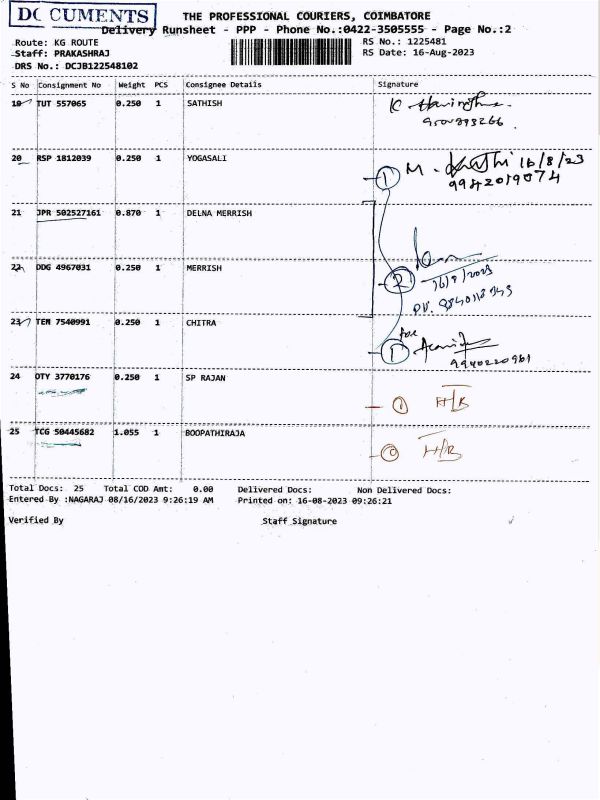 DOCUMENTS
THE PROFESSIONAL COURIERS, COIMBATORE
Delivery Runsheet - PPP - Phone No.:0422-3505555 - Page No.:2
Route: KG ROUTE
RS No.: 1225481
Staff: PRAKASHRAJ
RS Date: 16-Aug-2023
DRS No.: DCJB122548102
S No Consignment No Weight PCS Consignee Details Signature
19 TUT 557065 0.250 1 SATHISH K
20 RSP 1812039 0.250 1 YOGASALI 1 M. 16/8/23
9942019074
21 JPR 502527161 0.870 1 DELNA MERRISH
22 DDG 4967031 0.250 1 MERRISH 2
16/8/2023
23 TEN 7540991 0.250 1 CHITRA for
1
9940220961
24 OTY 3770176 0.250 1 SP RAJAN 1 H/B
25 TCG 50445682 1.055 1 BOOPATHIRAJA H/B
Total Docs: 25 Total COD Amt: 0.00 Delivered Docs: Non Delivered Docs:
Entered By :NAGARAJ 08/16/2023 9:26:19 AM Printed on: 16-08-2023 09:26:21
Verified By Staff Signature